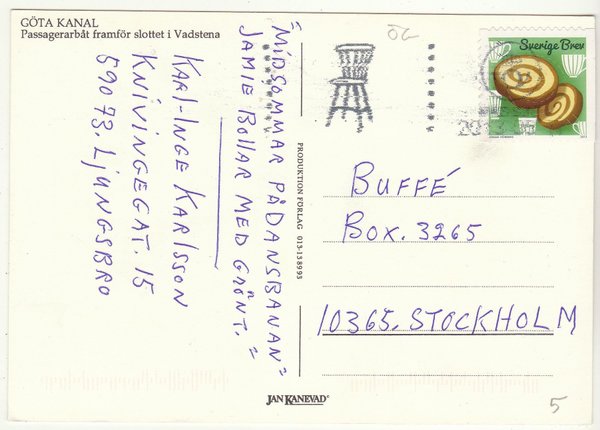 GÖTA KANAL
Passagerarbåt framför slottet i Vadstena
ÖG
Sverige Brev
"MIDSOMMAR PÅ DANSBANAN"
JAMIE BOLLAR MED GRÖNT. "
KARL-INGE KARLSSON
KNIVINGEGAT. 15
59073. LJUNGSBRO
PRODUKTION FÖRLAG 013-13 8993
BUFFÉ
BOX. 3265
10365. STOCKHOLM
JAN KANEVAD
5